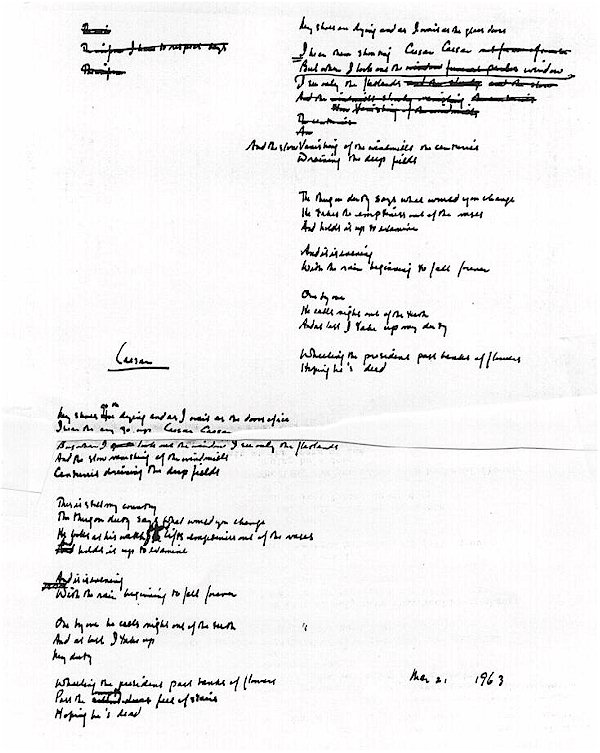 The air
I have to respect days
My shoes are dying and as I wait at the glass doors
I hear them shouting Caesar Caesar
But when I look out the window funeral window
I see only the flatlands and the slow
And the windmills slowly vanishing the centuries
slow vanishing of the windmills
The centuries
An
And the slow vanishing of the windmills the centuries
Draining the deep fields
The thug on duty says what would you change
He takes the emptiness out of the vases
And holds it up to examine
And it is evening
With the rain beginning to fall forever
One by one
He calls night out of the teeth
And at last I take up my duty
Wheeling the president past banks of flowers
Hoping he's dead
Caesar
My shoes are dying and as I wait at the door of ice
I hear the cry go up Caesar Caesar
But when I look out the window I see only the flatlands
And the slow vanishing of the windmills
Centuries draining the deep fields
This is still my country
The thug on duty says what would you change
He looks at his watch he lifts emptiness out of the vases
And holds it up to examine
And it is evening
With the rain beginning to fall forever
One by one he calls night out of the teeth
And at last I take up
My duty
Wheeling the president past banks of flowers
Past the feet of stairs
Hoping he's dead
Mar 21 1963